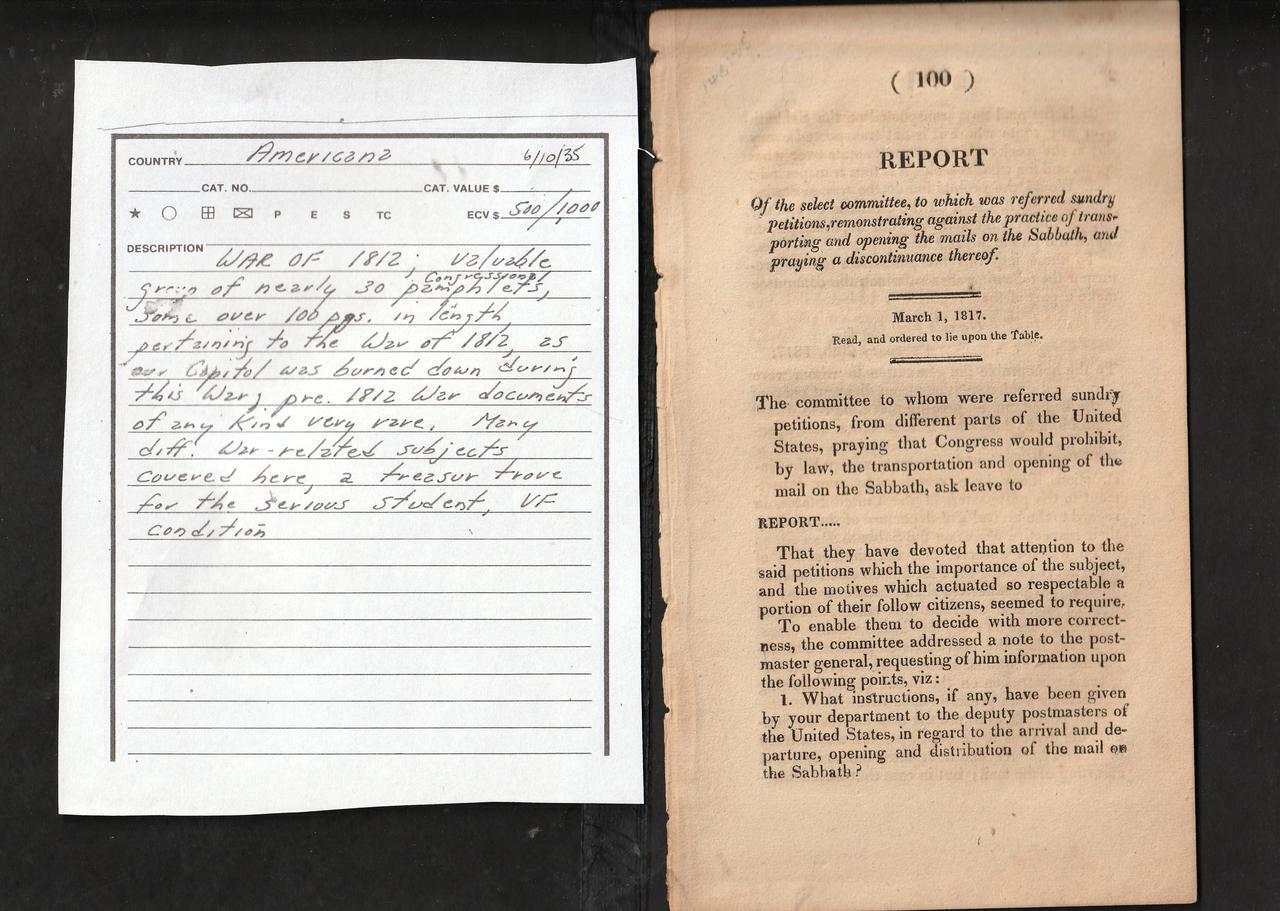 COUNTRY Americana 6/10/35
CAT. NO. CAT. VALUE $
P E S TC ECV $ 500/1000
DESCRIPTION
WAR OF 1812; Valuable
group of nearly 30 Congressional pamphlets,
some over 100 pgs. in length,
pertaining to the War of 1812, as
our Capitol was burned down during
this War; pre. 1812 War documents
of any Kind very rare. Many
diff. War-related subjects
covered here, a treasur trove
for the serious student, VF
condition
( 100 )
REPORT
Of the select committee, to which was referred sundry
petitions, remonstrating against the practice of trans-
porting and opening the mails on the Sabbath, and
praying a discontinuance thereof.
March 1, 1817.
Read, and ordered to lie upon the Table.
The committee to whom were referred sundry
petitions, from different parts of the United
States, praying that Congress would prohibit,
by law, the transportation and opening of the
mail on the Sabbath, ask leave to
REPORT.....
That they have devoted that attention to the
said petitions which the importance of the subject,
and the motives which actuated so respectable a
portion of their follow citizens, seemed to require.
To enable them to decide with more correct-
ness, the committee addressed a note to the post-
master general, requesting of him information upon
the following points, viz:
1. What instructions, if any, have been given
by your department to the deputy postmasters of
the United States, in regard to the arrival and de-
parture, opening and distribution of the mail on
the Sabbath?